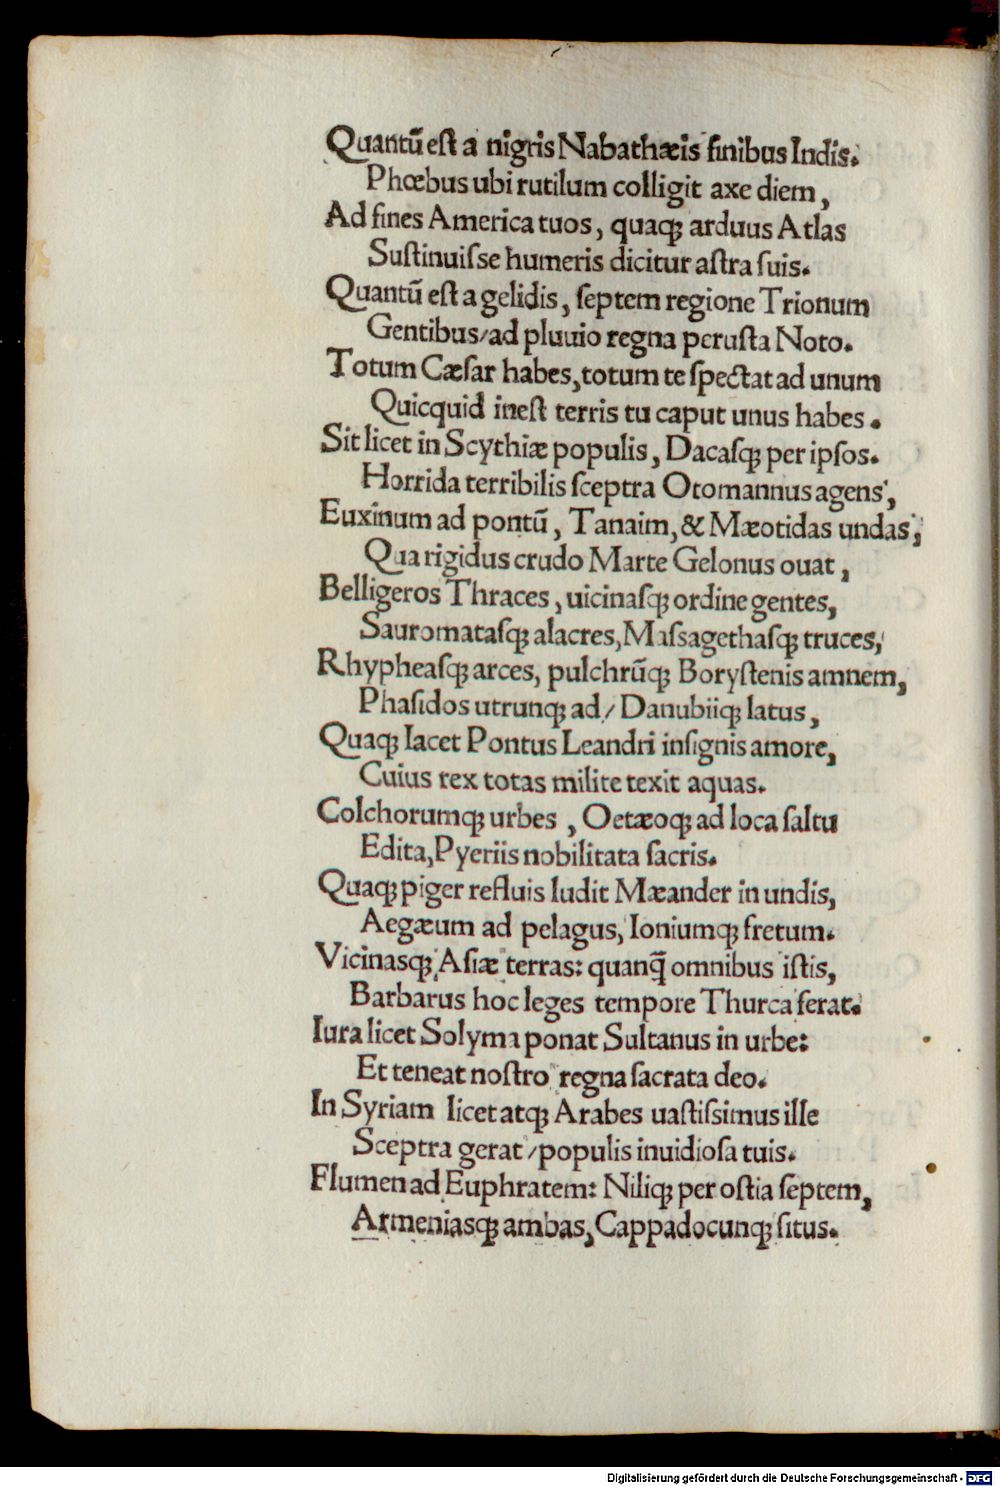 Quantũ eſt a nigris Nabathæis finibus Indis.
Phœbus ubi rutilum colligit axe diem,
Ad fines America tuos, quaqꝫ arduus Atlas
Suſtinuiſse humeris dicitur aſtra ſuis.
Quantũ eſt a gelidis, ſeptem regione Trionum
Gentibus/ad pluuio regna peruſta Noto.
Totum Cæſar habes, totum te ſpectat ad unum
Quicquid ineſt terris tu caput unus habes.
Sit licet in Scythiæ populis, Dacaſqꝫ per ipſos.
Horrida terribilis ſceptra Otomannus agens,
Euxinum ad pontũ, Tanaim, & Mæotidas undas,
Qua rigidus crudo Marte Gelonus ouat,
Belligeros Thraces, uicinaſqꝫ ordine gentes,
Sauromataſqꝫ alacres, Maſsagethaſqꝫ truces,
Rhypheaſqꝫ arces, pulchrũqꝫ Boryſtenis amnem,
Phaſidos utrunqꝫ ad/ Danubiiqꝫ latus,
Quaqꝫ Iacet Pontus Leandri inſignis amore,
Cuius rex totas milite texit aquas.
Colchorumqꝫ urbes, Oetæoqꝫ ad loca ſaltu
Edita, Pyeriis nobilitata ſacris.
Quaqꝫ piger refluis ludit Mæander in undis,
Aegæum ad pelagus, Ioniumqꝫ fretum.
Vicinasqꝫ Aſiæ terras: quanq̃ omnibus iſtis,
Barbarus hoc leges tempore Thurca ferat.
Iura licet Solyma ponat Sultanus in urbe:
Et teneat noſtro regna ſacrata deo.
In Syriam licet atqꝫ Arabes uaſtiſsimus ille
Sceptra gerat/populis inuidioſa tuis.
Flumen ad Euphratem: Niliqꝫ per oſtia ſeptem,
Armeniasqꝫ ambas, Cappadocunqꝫ ſitus.
Digitalisierung gefördert durch die Deutsche Forschungsgemeinschaft - DFG